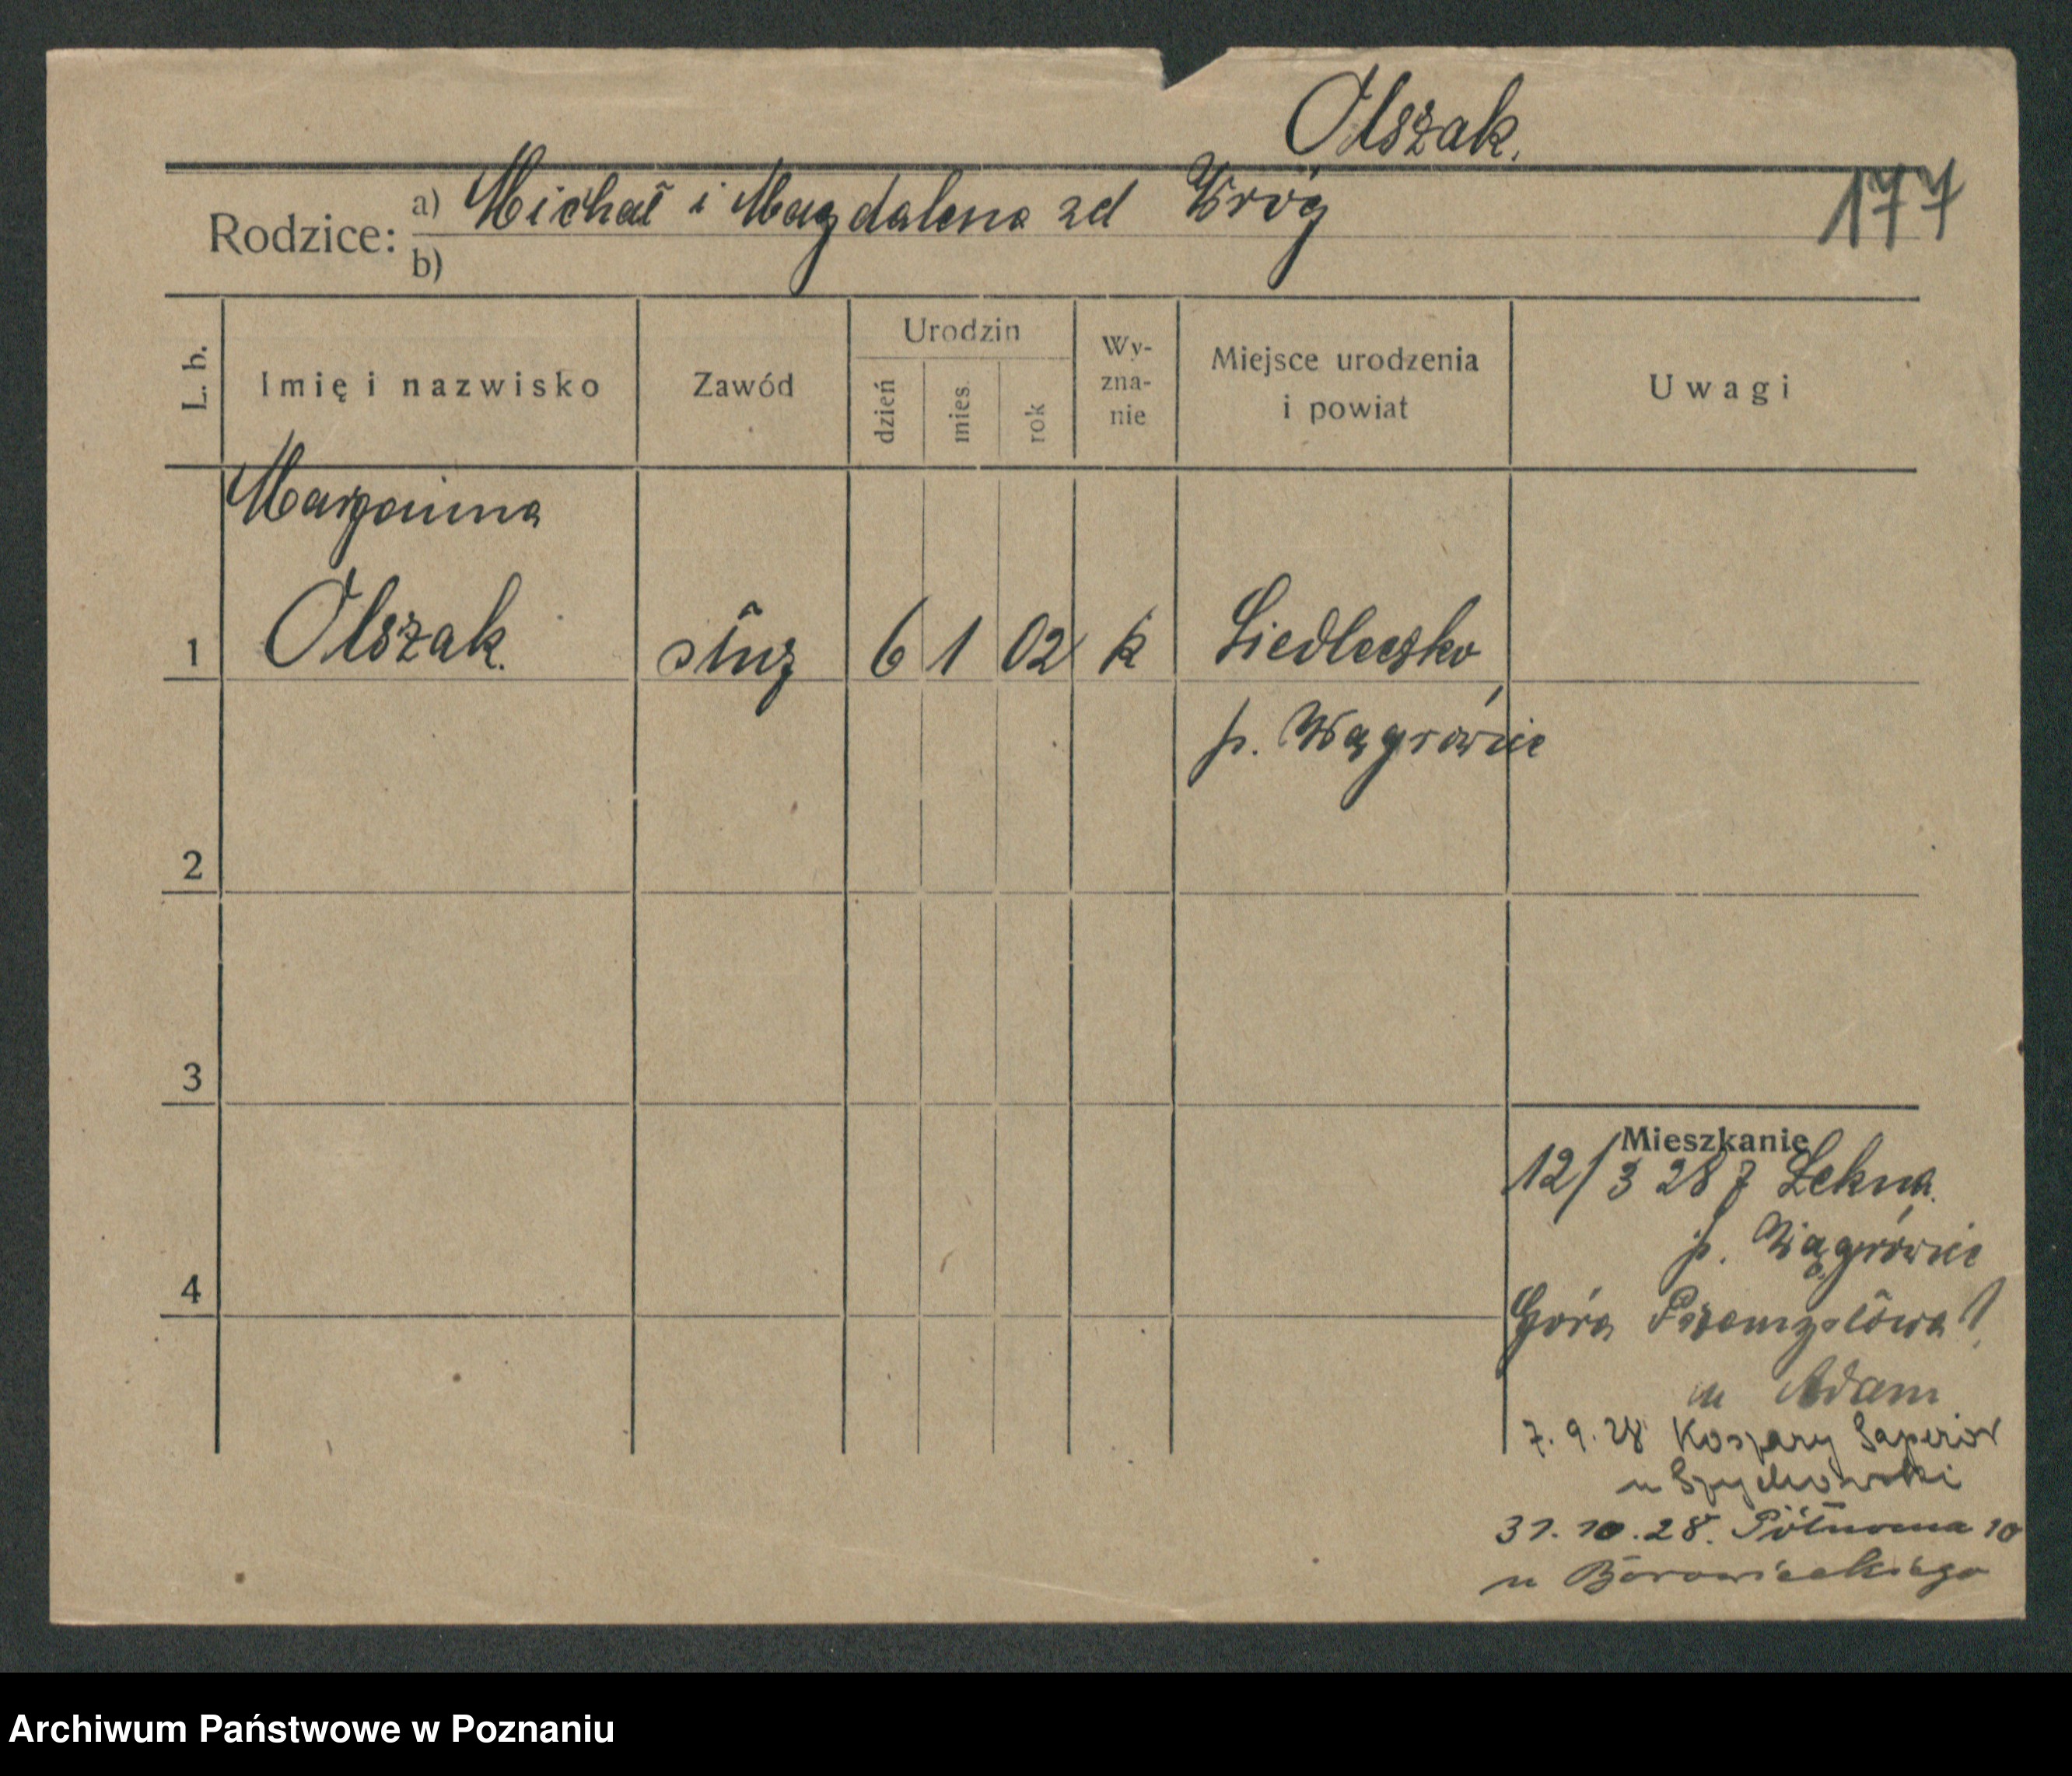 Olszak.
177
Rodzice: a) Michał i Magdalena zd Wróg
b)
L. b. Imię i nazwisko Zawód Urodzin dzień mies. rok Wy-zna-nie Miejsce urodzenia i powiat Uwagi
Maryanna
1 Olszak. służ 6 1 02 k Siedleczko
p. Wągrówiec
2
3
Mieszkanie
12/3 28 z Lekna.
p. Wągrówiec
4
Góra Przemysłowa 1
u Adam
7. 9. 28 Koszary Saperów
u Szychowski
31. 10. 28. Północna 10
u Borowieckiego
Archiwum Państwowe w Poznaniu